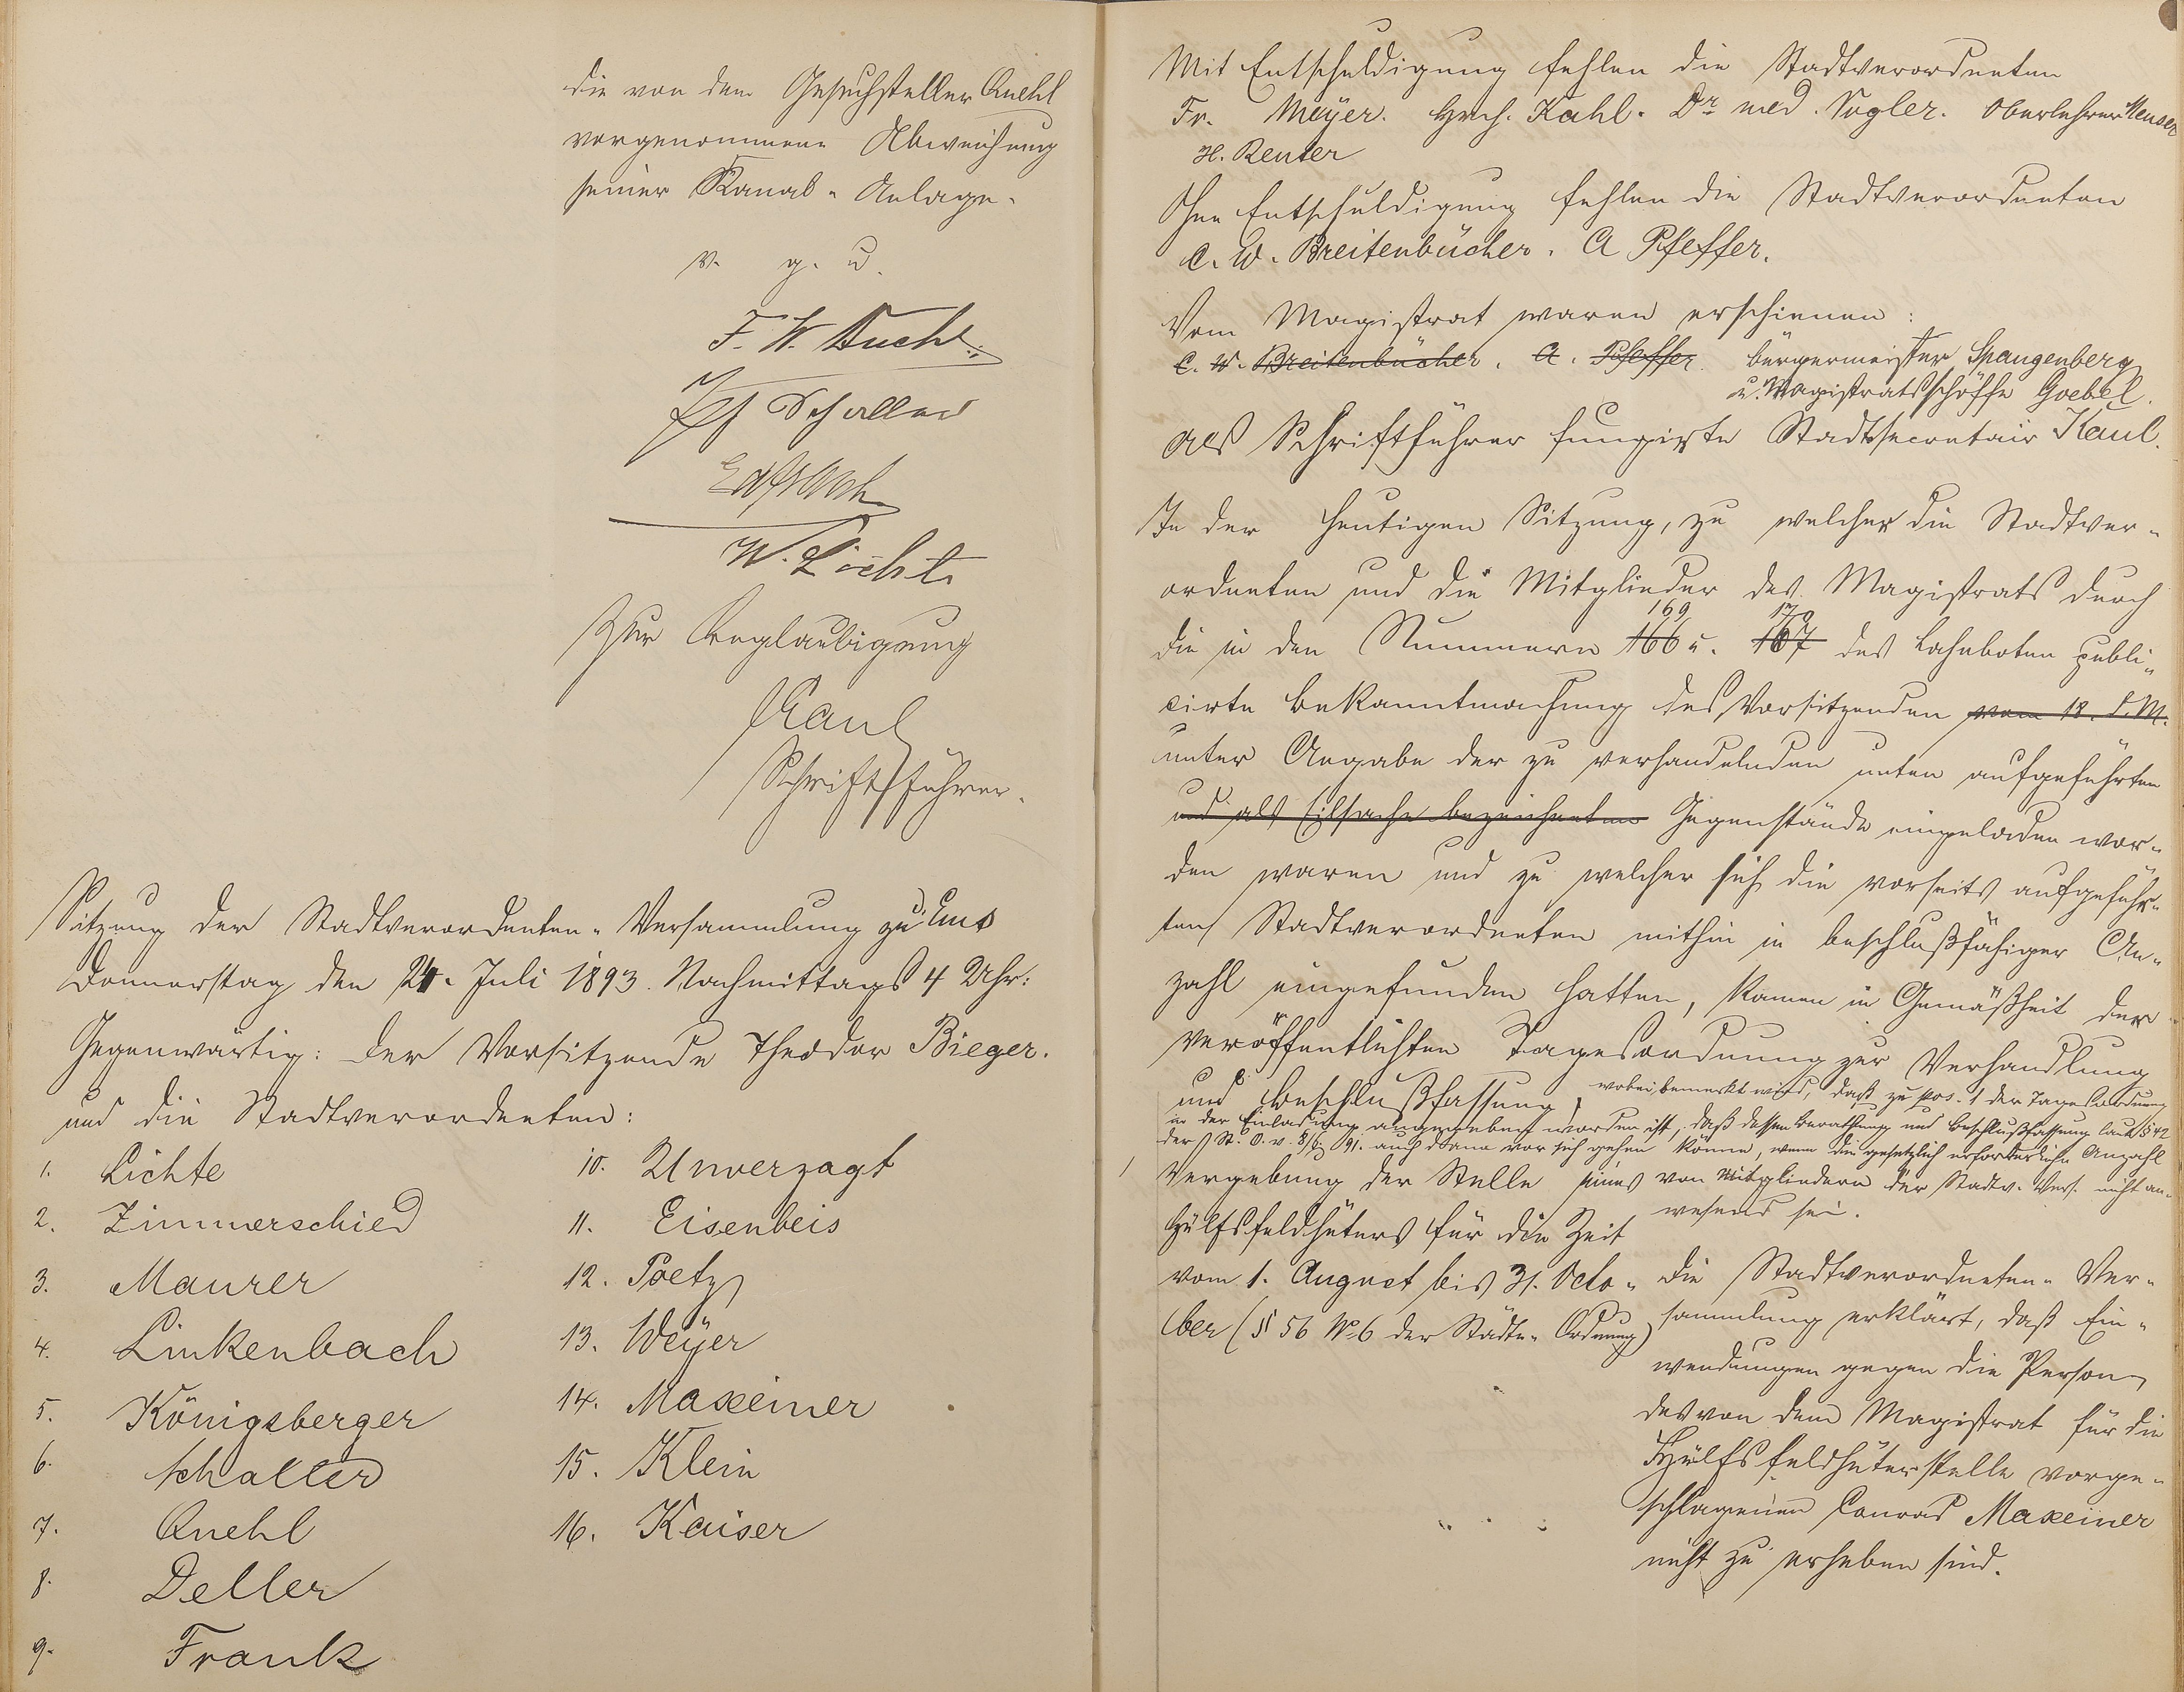 die von dem Gesuchsteller Quehl
vorgenommene Abweichung
seiner Kanal-Anlage.
v. g. u.
Schaller
W. Lichte
Zur Beglaubigung
Kaul
Schriftführer.
Sitzung der Stadtverordneten-Versammlung zu Ems
Donnerstag den Juli 1893. Nachmittags 4 Uhr:
Gegenwärtig: Der Vorsitzende Theodor Bieger.
und die Stadtverordneten:
1. Lichte
2. Zimmerschied
3. Maurer
4. Linkenbach
5. Königsberger
6. Schaller
7. Quehl
8. Deller
9. Frank
10. Unverzagt
11. Eisenbeis
12. Poetz
13. Weyer
14. Maxeiner
15. Klein
16. Kaiser
Mit Entschuldigung fehlen die Stadtverordneten
Fr. Meyer. Hrch. Kahl. Dr med. Vogler. Oberlehrer
H. Reuter
Ohne Entschuldigung fehlen die Stadtverordneten
C. W. Breitenbücher. A Pfeffer.
Vom Magistrat waren erschienen:
C. W. Breitenbücher. A. Pfeffer. Bürgermeister Spangenberg
u. Magistratsschöffe Goebel.
Als Schriftführer fungirte Stadtsecretair Kaul.
In der heutigen Sitzung, zu welcher die Stadtver-
ordneten und die Mitglieder des Magistrats durch
169 170
die in den Nummern 166 u. 167 des Lahnboten publi-
cirte Bekanntmachung des Vorsitzenden vom 18. d. M.
unter Angabe der zu verhandelnden unten aufgeführten
und als Eilsache bezeichneten Gegenstände eingeladen wor-
den waren und zu welcher sich die vorseits aufgeführ-
ten Stadtverordneten mithin in beschlußfähiger An-
zahl eingefunden hatten, kamen in Gemäßheit der
veröffentlichten Tagesordnung zur Verhandlung
und Beschlußfassung, wobei bemerkt wird, daß zu pos. 1 der Tagesordnung
in der Einladung angegeben worden ist, daß dessen Berathung und Beschlußfassung laut § 42
der St. O. v. 8/6 91. auch dann vor sich gehen könne, wenn die gesetzlich erforderliche Anzahl
von Mitgliedern der Stadtv. Vers. nicht an-
wesend sei.
1 Vergebung der Stelle eines
Hülfsfeldhüters für die Zeit
vom 1. August bis 31. Octo-
ber (§ 56 No 6 der Städte-Ordnung)
Die Stadtverordneten-Ver-
sammlung erklärt, daß Ein-
wendungen gegen die Person
des von dem Magistrat für die
Hülfsfeldhüterstelle vorge-
schlagenen Conrad Maxeiner
nicht zu erheben sind.